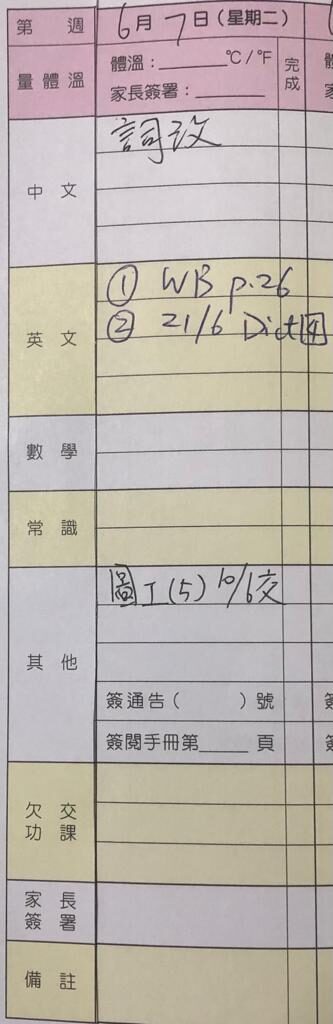 第 週 6月7日(星期二)
量體溫 體溫:______℃/℉ 完成
家長簽署:______
中文 詞改
英文 ① WB p.26
② 21/6 Dict 4
數學
常識
其他 圖工(5) 10/6交
簽通告( )號
簽閱手冊第____頁
欠交功課
家長簽署
備註